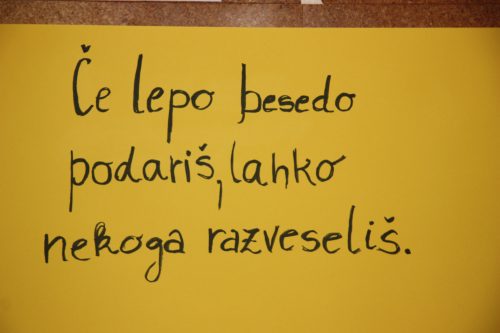 Če lepo besedo
podariš, lahko
nekoga razveseliš.